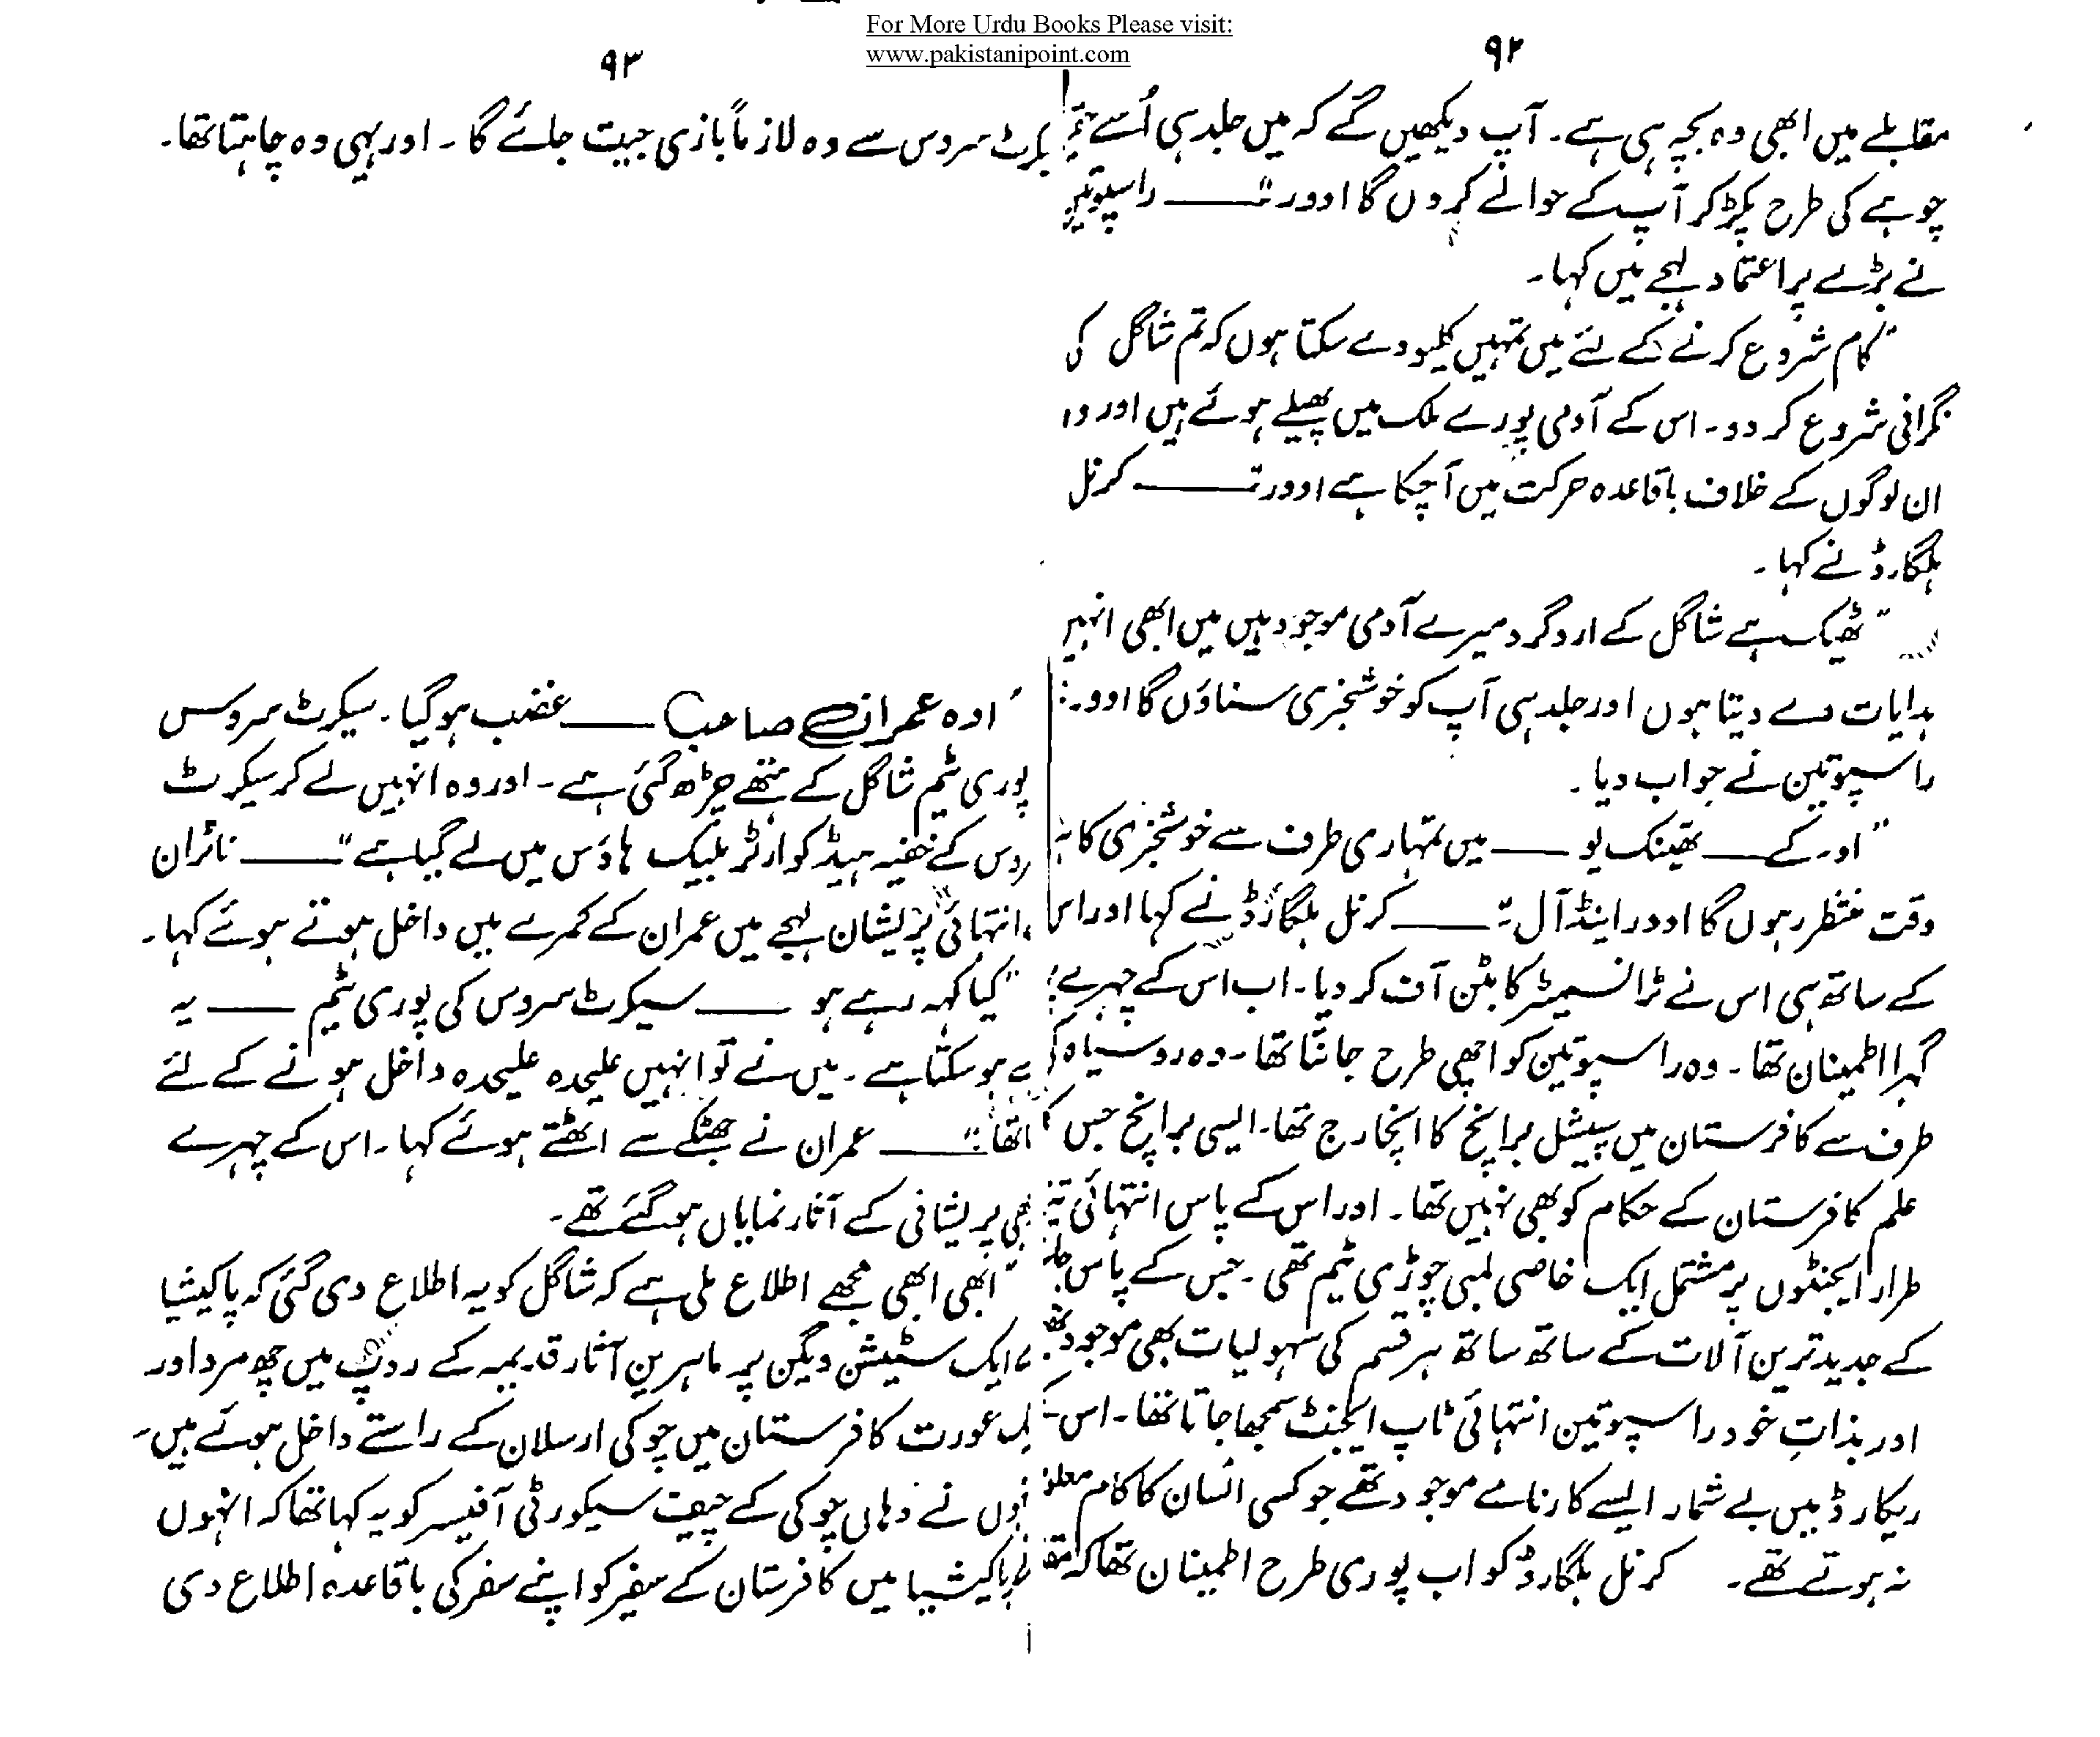 For More Urdu Books Please visit:
www.pakistanipoint.com
۹۲
مقابلے میں ابھی وہ بچہ ہی ہے۔ آپ دیکھیں گے کہ میں جلد ہی اُسے
چوہے کی طرح پکڑ کر آپ کے حوالے کر دوں گا اوور"۔۔۔۔ راسپوتین
نے بڑے پر اعتماد لہجے میں کہا۔
"کام شروع کرنے کے لئے میں تمہیں کلیو دے سکتا ہوں کہ تم شاگل کی
نگرانی شروع کر دو۔ اس کے آدمی پورے ملک میں پھیلے ہوئے ہیں اور وہ
ان لوگوں کے خلاف باقاعدہ حرکت میں آ چکا ہے اوور"۔۔۔۔ کرنل
بلگارڈ نے کہا۔
"ٹھیک ہے شاگل کے ارد گرد میرے آدمی موجود ہیں میں ابھی انہیں
ہدایات دے دیتا ہوں اور جلد ہی آپ کو خوشخبری سناؤں گا اوور"
راسپوتین نے جواب دیا۔
"او۔ کے ۔۔۔ تھینک یو ۔۔۔ میں تمہاری طرف سے خوشخبری کا
وقت منتظر رہوں گا اوور اینڈ آل"۔۔۔۔ کرنل بلگارڈ نے کہا اور اس
کے ساتھ ہی اس نے ٹرانسمیٹر کا بٹن آف کر دیا۔ اب اس کے چہرے
گہرا اطمینان تھا۔ وہ راسپوتین کو اچھی طرح جانتا تھا۔ وہ روسیاہ کی
طرف سے کافرستان میں سپیشل برانچ کا انچارج تھا۔ ایسی برانچ جس کا
علم کافرستان کے حکام کو بھی نہیں تھا۔ اور اس کے پاس انتہائی تیز
طرار ایجنٹوں پر مشتمل ایک خاصی لمبی چوڑی ٹیم تھی۔ جس کے پاس
کے جدید ترین آلات کے ساتھ ساتھ ہر قسم کی سہولیات بھی موجود تھیں
اور بذاتِ خود راسپوتین انتہائی ٹاپ ایجنٹ سمجھا جاتا تھا۔ اس کے
ریکارڈ میں بے شمار ایسے کارنامے موجود تھے جو کسی انسان کا کام معلوم
نہ ہوتے تھے۔ کرنل بلگارڈ کو اب پوری طرح اطمینان تھا کہ
۹۳
سیکرٹ سروس سے وہ لازماً بازی جیت جائے گا۔ اور یہی وہ چاہتا تھا۔
"اوہ عمران صاحب ۔۔۔ غضب ہو گیا۔ سیکرٹ سروس
پوری ٹیم شاگل کے ہتھے چڑھ گئی ہے۔ اور وہ انہیں لے کر سیکرٹ
سروس کے خفیہ ہیڈ کوارٹر بلیک ہاؤس میں لے گیا ہے"۔۔۔۔ ناٹران
انتہائی پریشان لہجے میں عمران کے کمرے میں داخل ہوتے ہوئے کہا۔
"کیا کہہ رہے ہو ۔۔۔ سیکرٹ سروس کی پوری ٹیم ۔۔۔ یہ
ہو سکتا ہے۔ میں نے تو انہیں علیحدہ علیحدہ داخل ہونے کے لئے
تھا"۔۔۔۔ عمران نے جھٹکے سے اٹھتے ہوئے کہا۔ اس کے چہرے
بھی پریشانی کے آثار نمایاں ہو گئے تھے۔
"ابھی ابھی مجھے اطلاع ملی ہے کہ شاگل کو یہ اطلاع دی گئی کہ پاکیشیا
سے ایک سٹیشن ویگن پر ماہرین آثار قدیمہ کے روپ میں چھ مرد اور
ایک عورت کافرستان میں چوکی ارسلان کے راستے داخل ہوئے ہیں۔
انہوں نے وہاں چوکی کے چیف سیکورٹی آفیسر کو یہ کہا تھا کہ انہوں
نے پاکیشیا میں کافرستان کے سفیر کو اپنے سفر کی باقاعدہ اطلاع دی